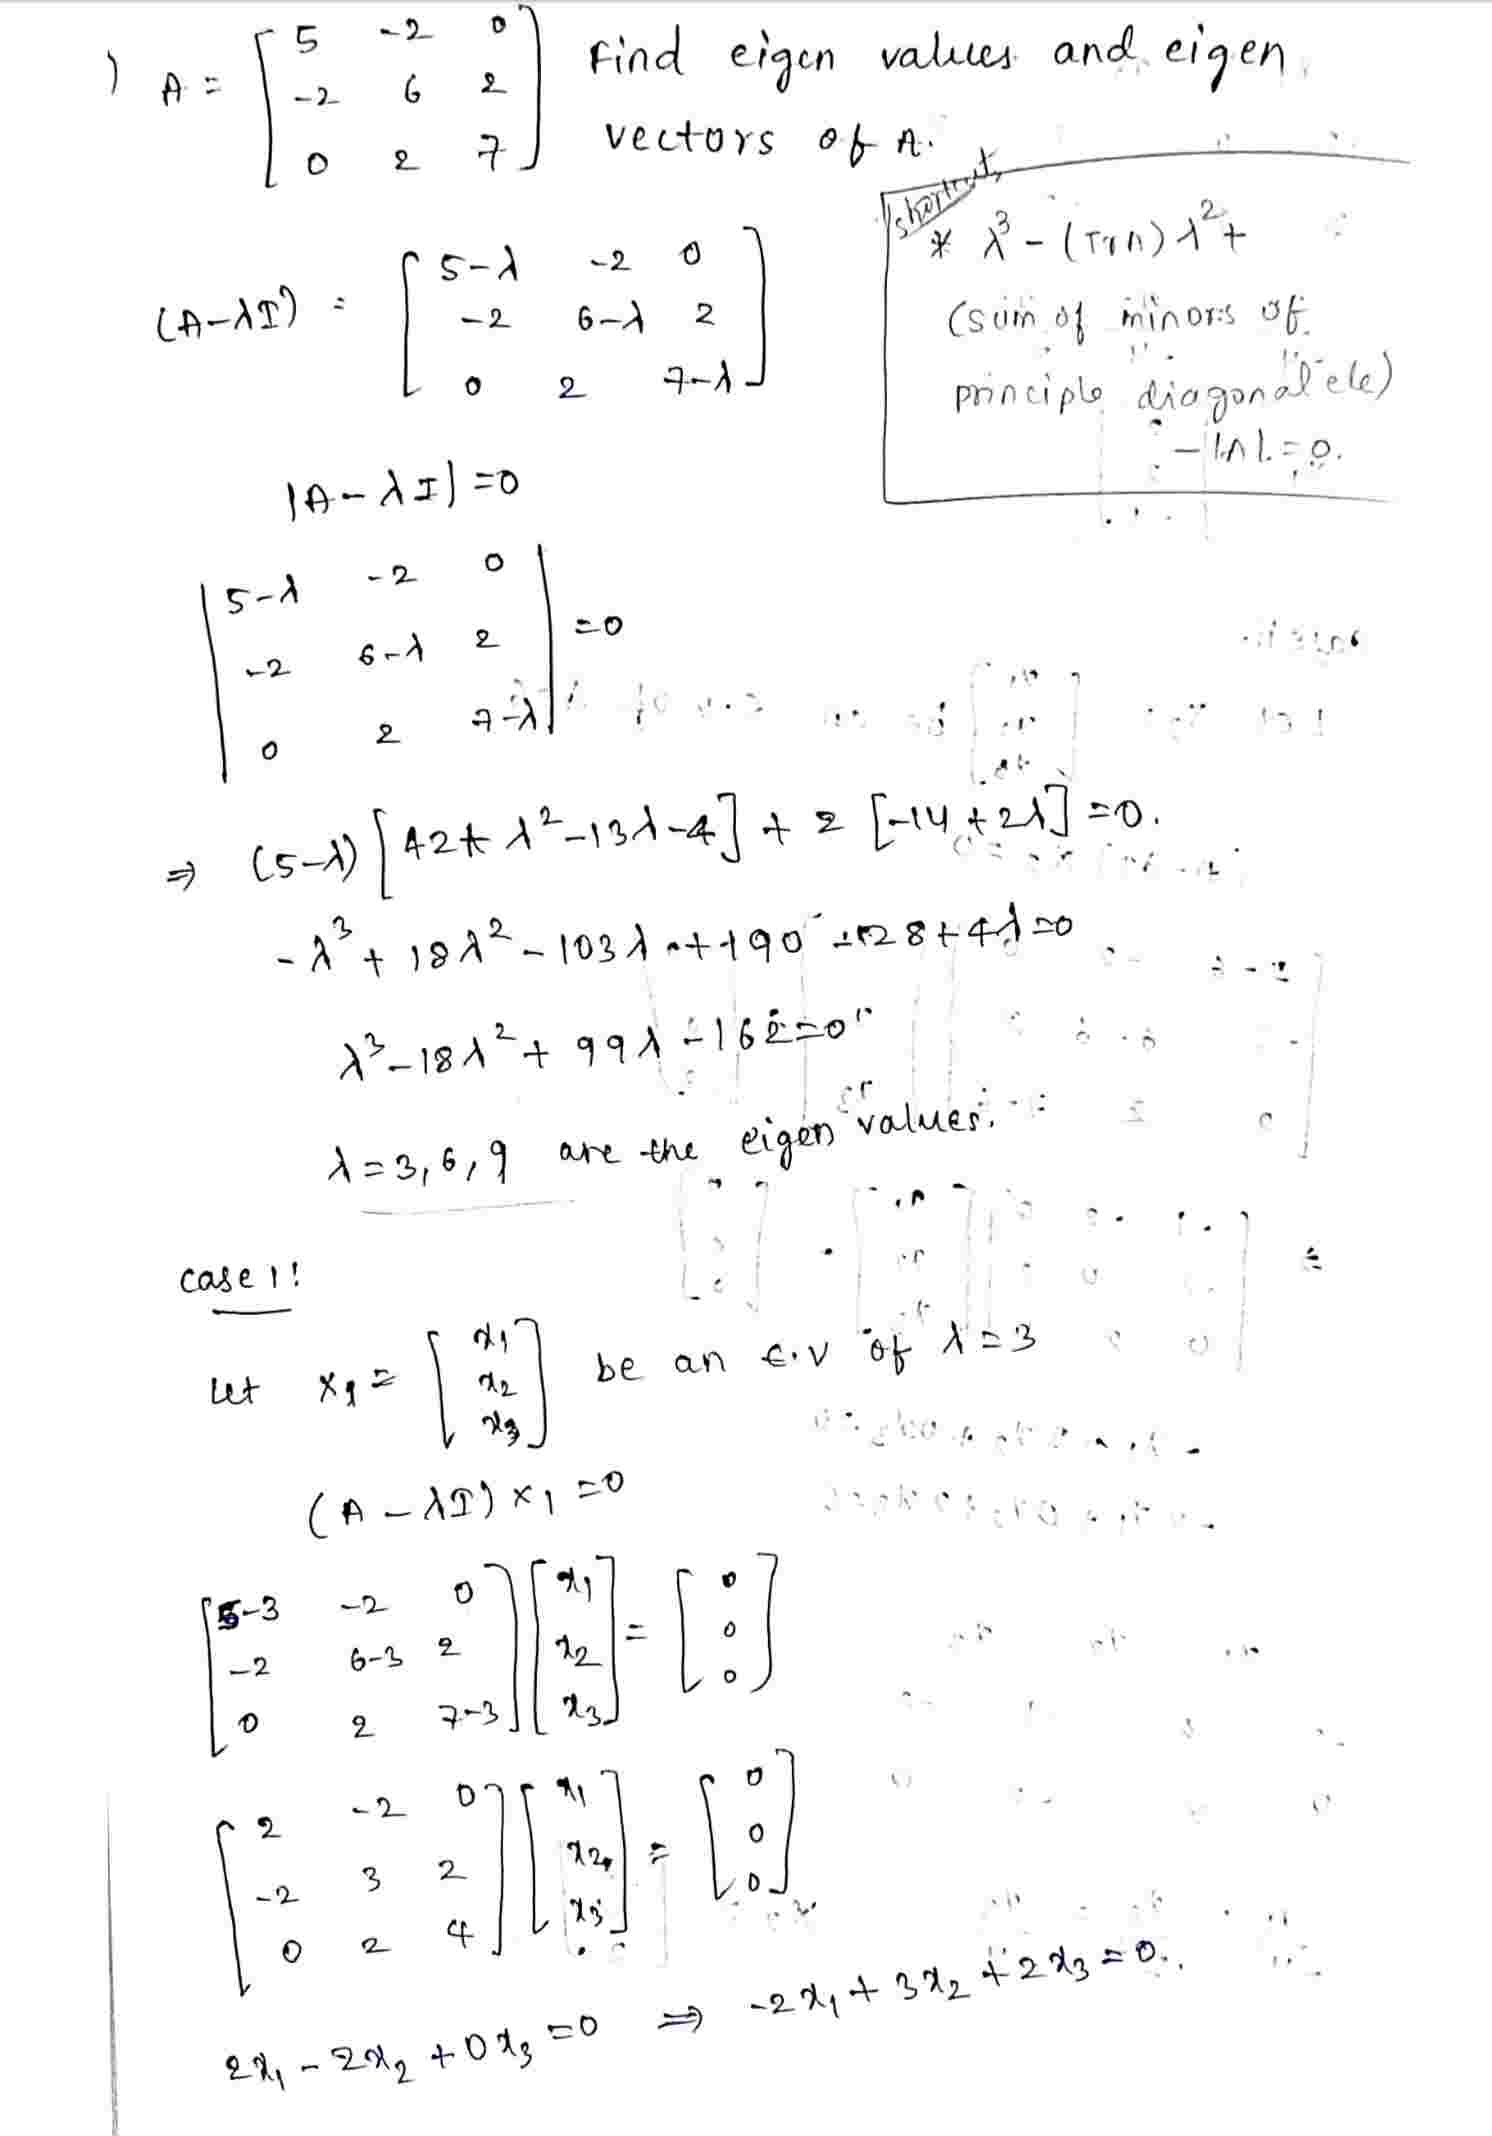 ) A = [ 5 -2 0
-2 6 2
0 2 7 ] Find eigen values and eigen
vectors of A.
shortcut
* λ³ - (TrA) λ² +
(sum of minors of
principle diagonal ele)
- |A| = 0.
(A-λI) = [ 5-λ -2 0
-2 6-λ 2
0 2 7-λ ]
|A - λI| = 0
| 5-λ -2 0
-2 6-λ 2
0 2 7-λ | = 0
⇒ (5-λ) [42 + λ² - 13λ - 4] + 2 [-14 + 2λ] = 0.
- λ³ + 18λ² - 103λ + 190 - 28 + 4λ = 0
λ³ - 18λ² + 99λ - 162 = 0
λ = 3, 6, 9 are the eigen values.
case 1:
Let X₁ = [ x₁
x₂
x₃ ] be an E.V of λ = 3
(A - λI) X₁ = 0
[ 5-3 -2 0
-2 6-3 2
0 2 7-3 ] [ x₁
x₂
x₃ ] = [ 0
0
0 ]
[ 2 -2 0
-2 3 2
0 2 4 ] [ x₁
x₂
x₃ ] = [ 0
0
0 ]
2x₁ - 2x₂ + 0x₃ = 0 ⇒ -2x₁ + 3x₂ + 2x₃ = 0.